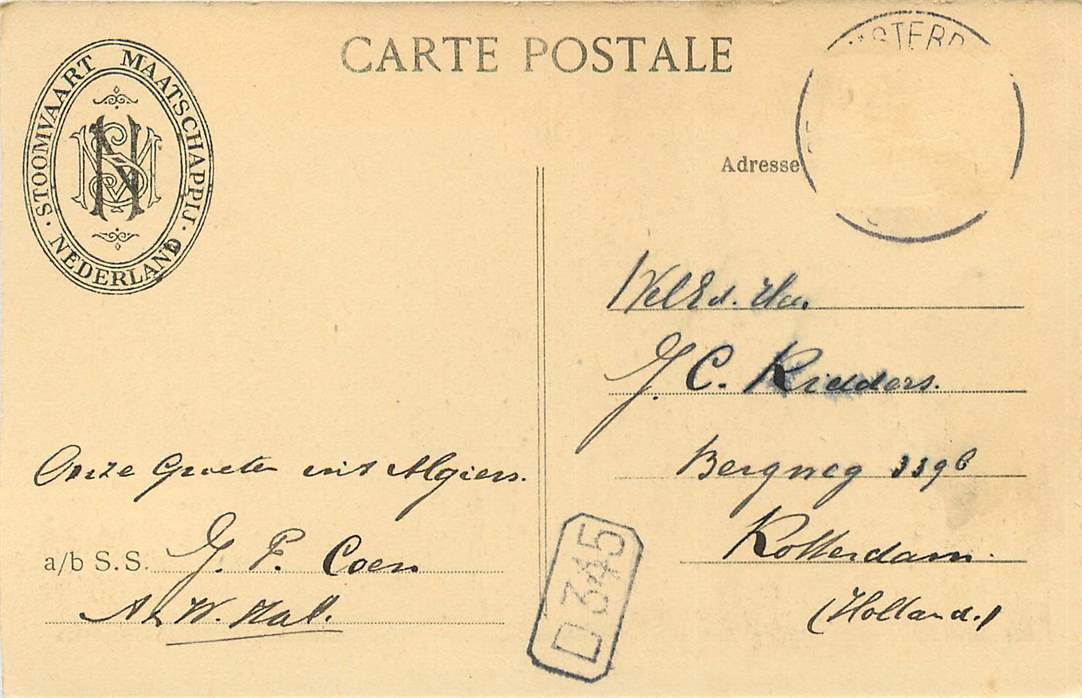 STOOMVAART MAATSCHAPPIJ
· NEDERLAND ·
CARTE POSTALE
Adresse
WelEd. Heer
J. C. Ridders.
Bergweg 339b
Rotterdam.
(Holland.)
Onze Groeten uit Algiers.
a/b S.S. J. P. Coen
D 345